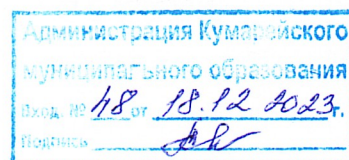 Администрация Кумарейского
муниципального образования
Вход. № 48 от 18.12 2023 г.
Подпись